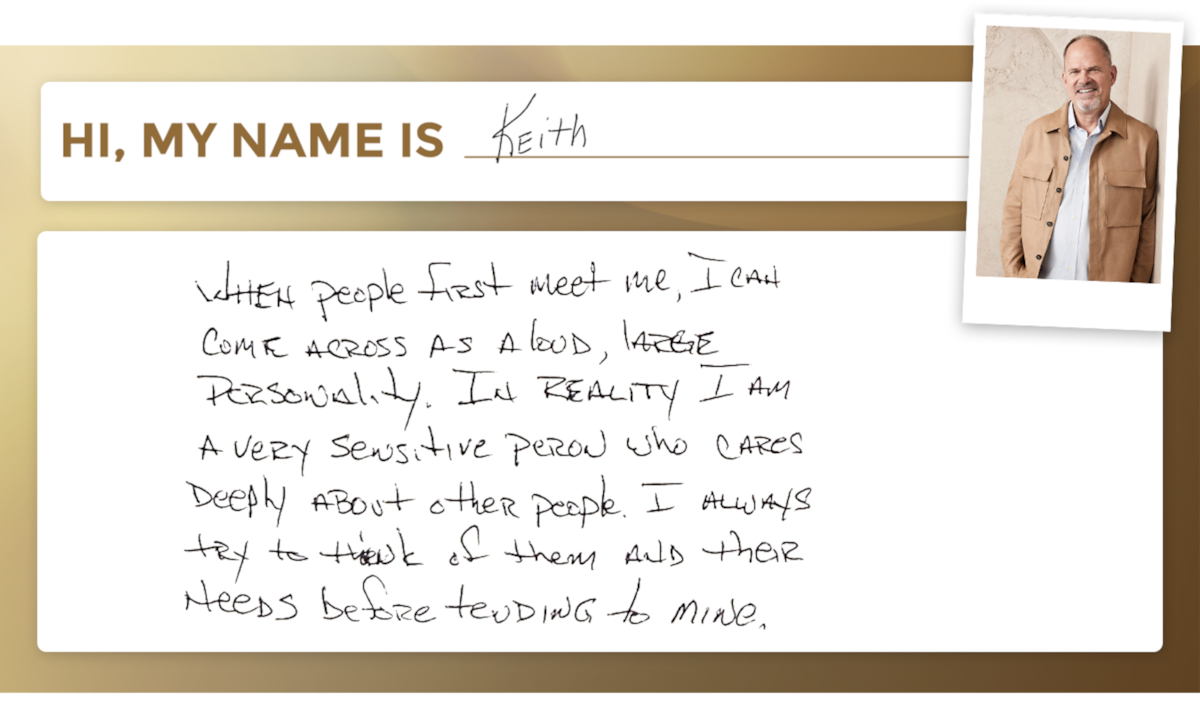 HI, MY NAME IS Keith
WHEN people first meet me, I CAN
COME ACROSS AS A loUD, lARGE
PERSONAlity. IN REALITY I AM
A VERY SENSitIVE PERON who CARES
DEEPly ABOUt other people. I ALWAYS
tRY to think of them AND their
NEEDS before teNDING to MINe.